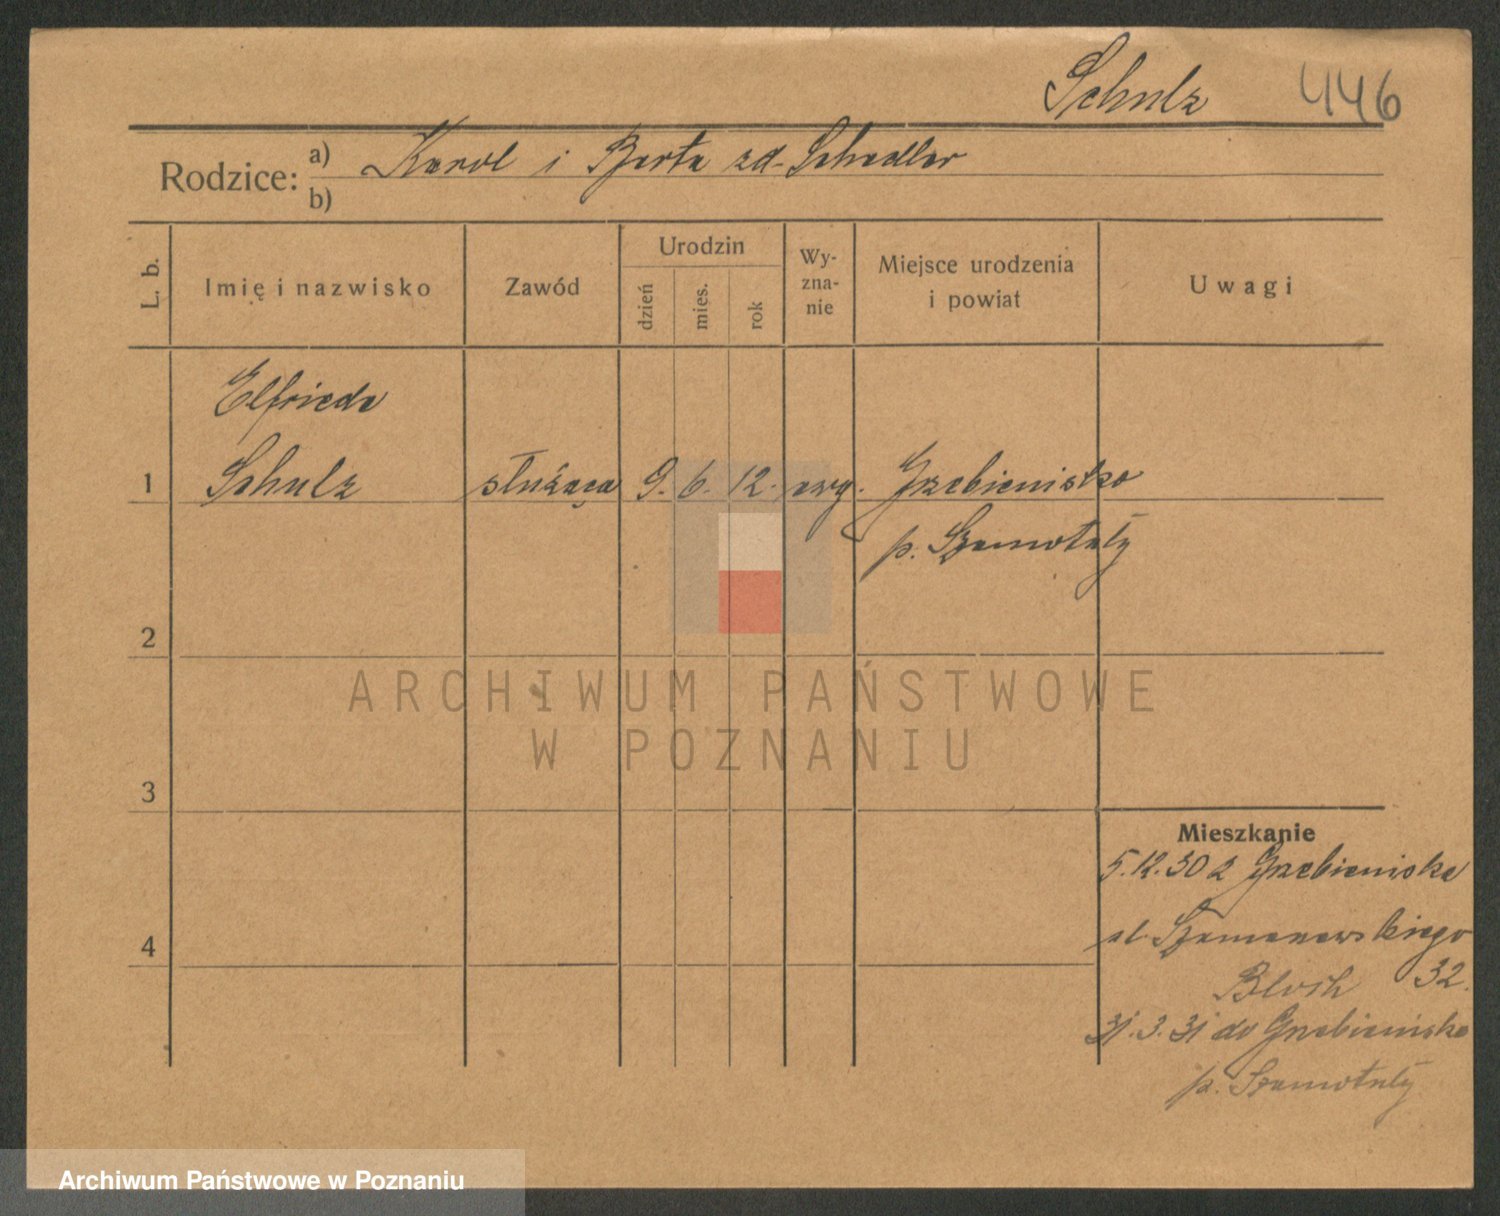 Schulz 446
Rodzice: a) Karol i Berta zd. Schedler
b)
L. b. Imię i nazwisko Zawód Urodzin dzień mies. rok Wy-zna-nie Miejsce urodzenia i powiat Uwagi
Elfriede
1 Schulz służąca 9. 6. 12. ewg. Grzebienisko
p. Szamotuły
2
ARCHIWUM PAŃSTWOWE
W POZNANIU
3
Mieszkanie
5.12.30 z Grzebieniska
ul. Szamarzewskiego
4
32.
31.3.31 do Grzebienisko
p. Szamotuły
Archiwum Państwowe w Poznaniu